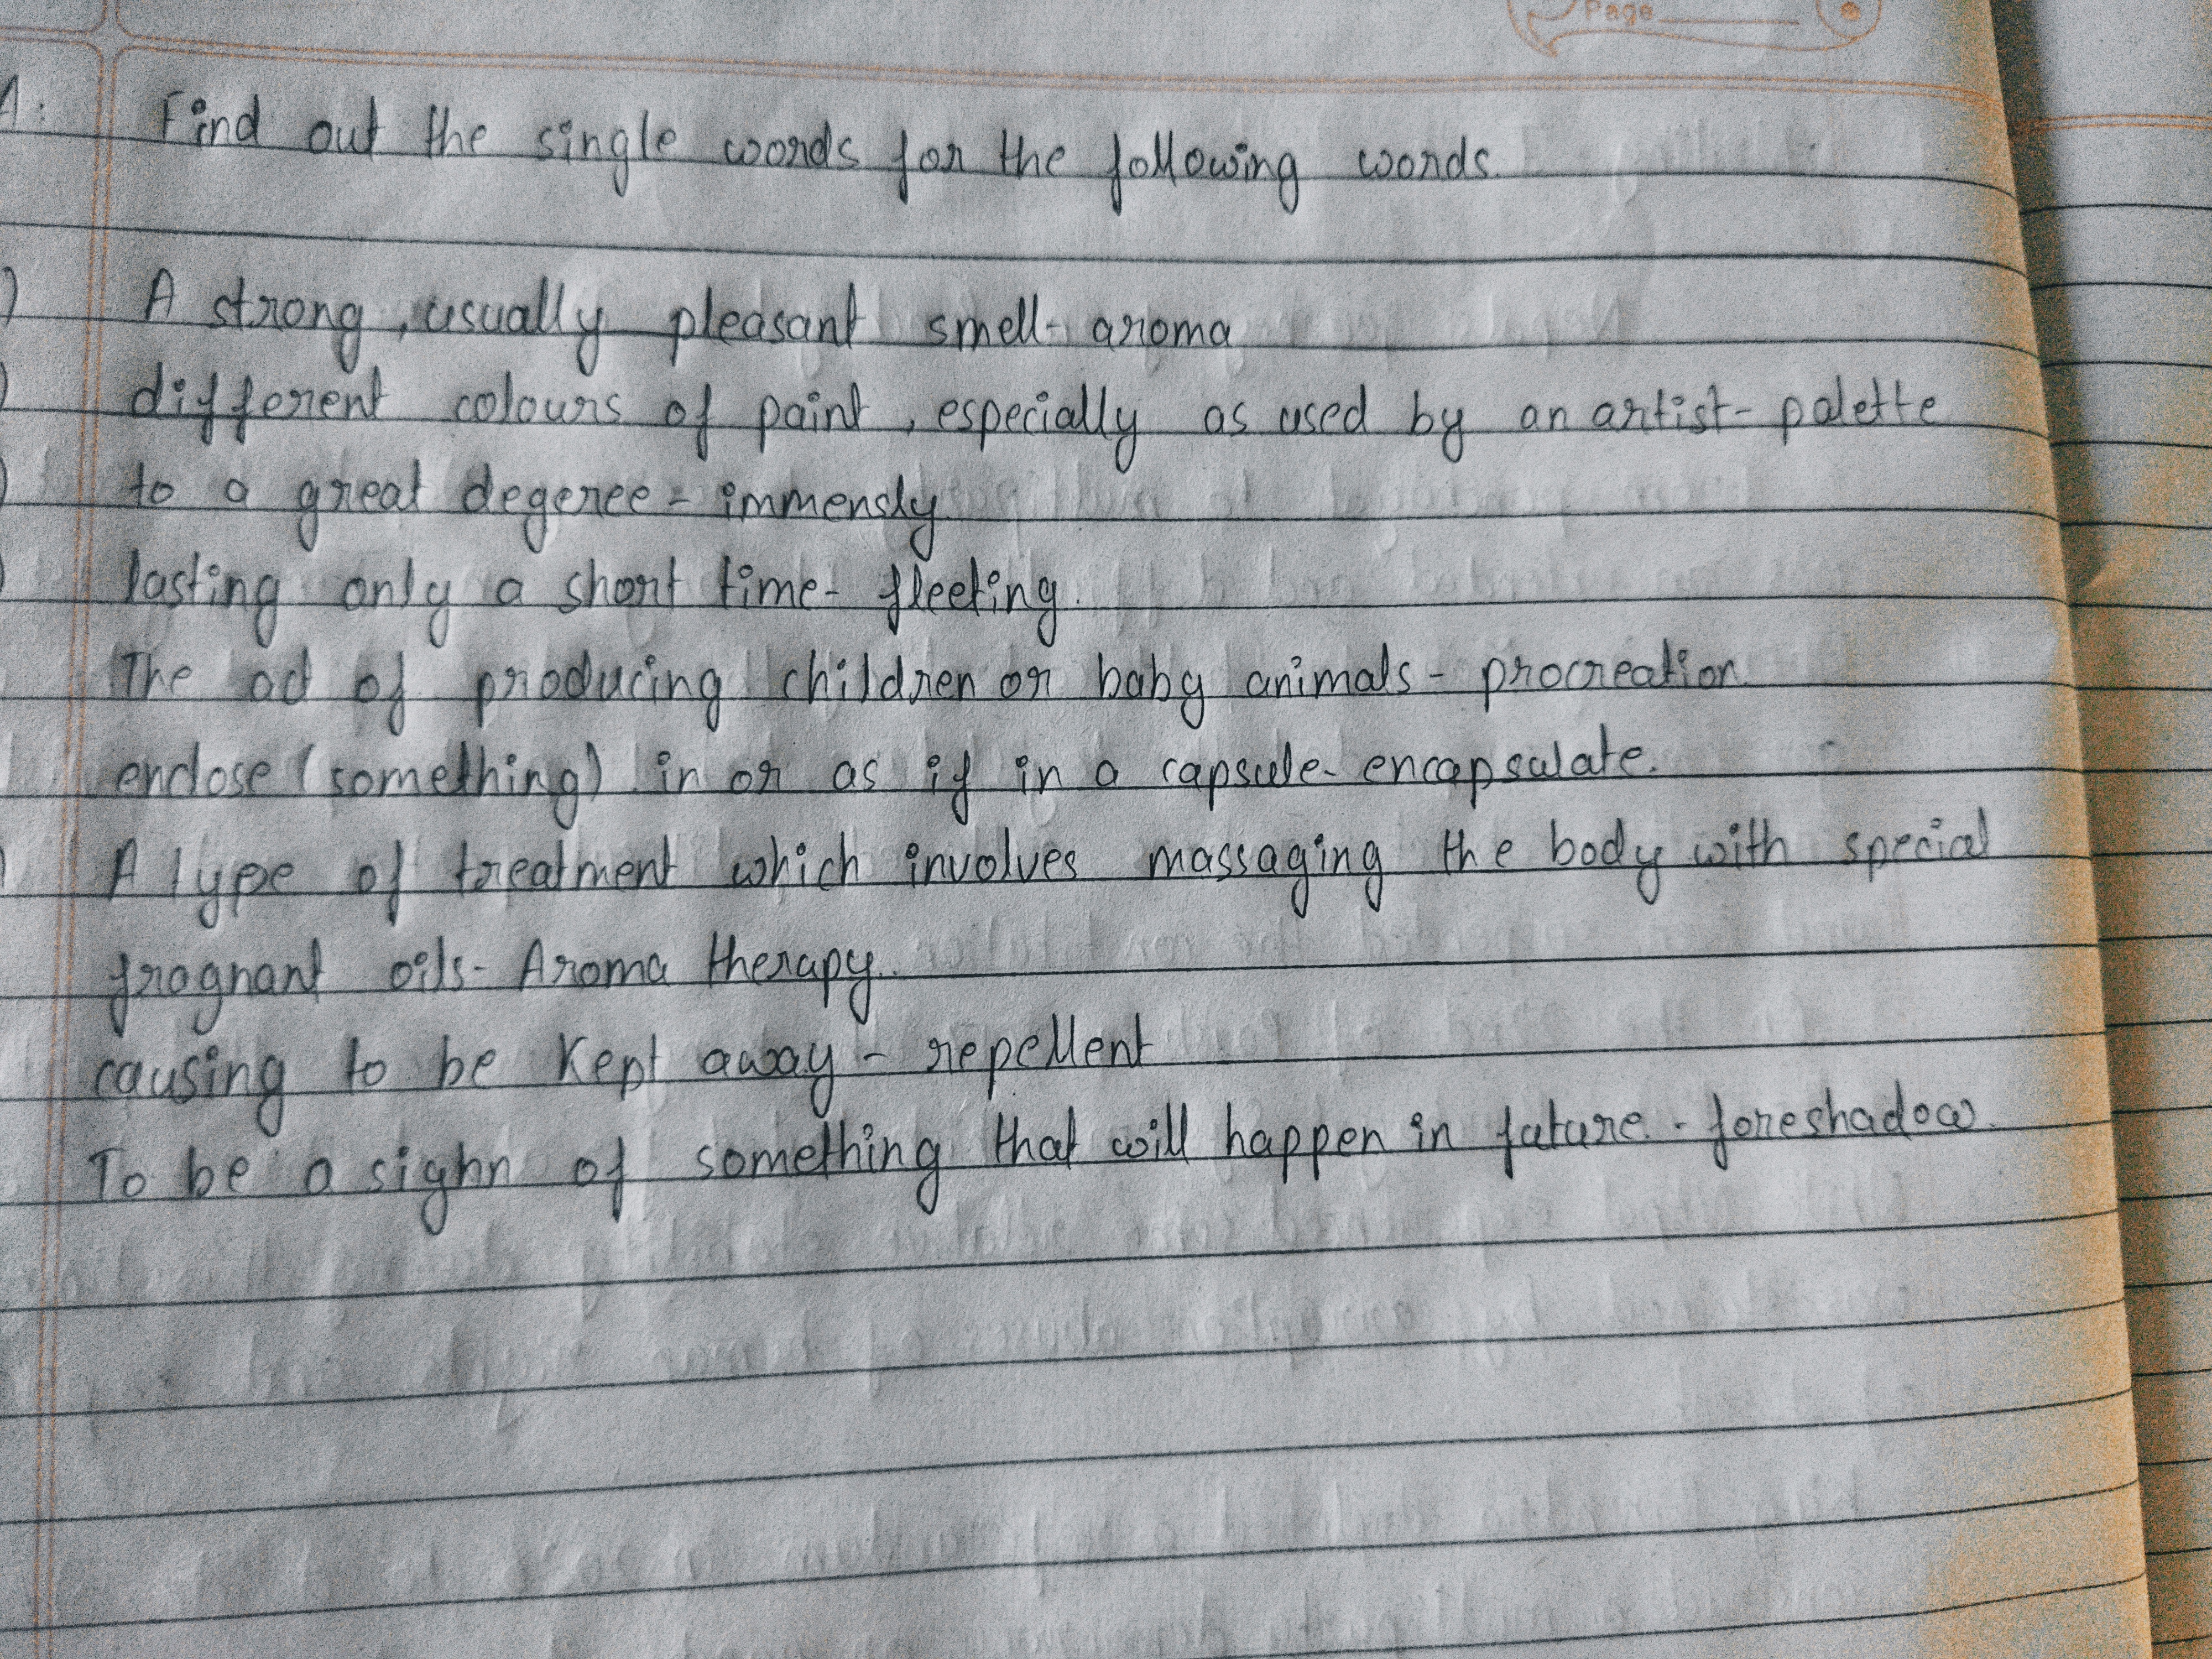 Page
A: Find out the single words for the following words.
) A strong, usually pleasant smell- aroma
) different colours of paint, especially as used by an artist- palette
) to a great degeree - immensly
) lasting only a short time- fleeting.
The act of producing children or baby animals - procreation
enclose (something) in or as if in a capsule- encapsulate.
) A type of treatment which involves massaging the body with special
fragnant oils- Aroma therapy.
causing to be Kept away - repellent
To be a sighn of something that will happen in future. - foreshadow.